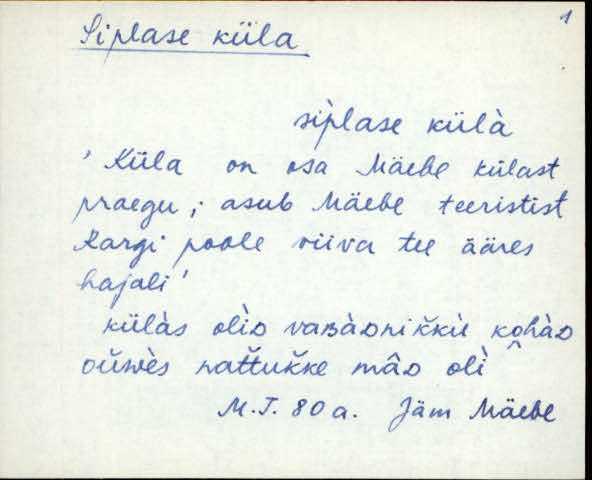 1
Siplase küla
sìplase külà
' Küla on osa Mäebe külast
praegu; asub Mäebe teeristist
Kargi poole viiva tee ääres
hajali'
külàs olìᴅ vaʙàᴅnikkù kohàᴅ
mâᴅ olì
M.T. 80 a. Jäm Mäebe